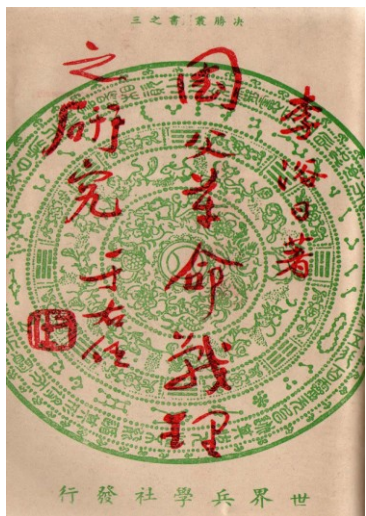 决勝叢書之三
李浴日著
國父革命戰理
之研究
于右任
世界兵學社發行